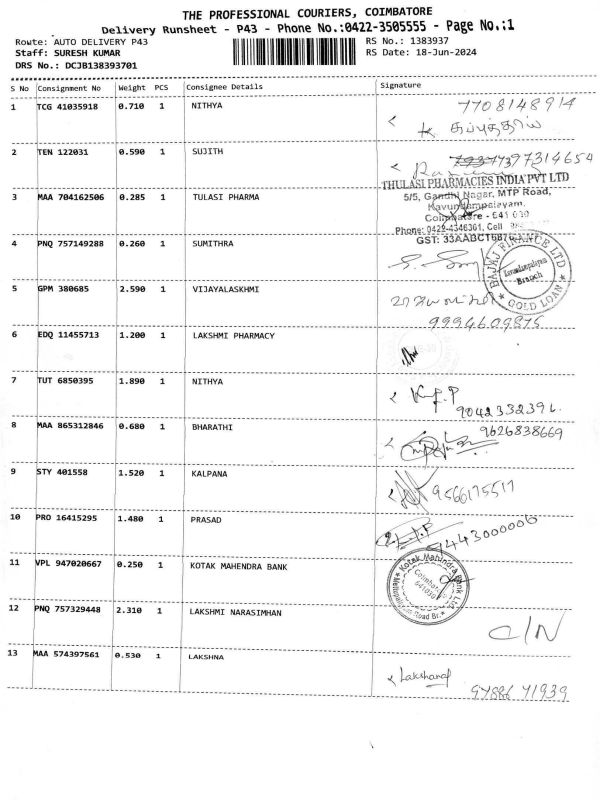 THE PROFESSIONAL COURIERS, COIMBATORE
Delivery Runsheet - P43 - Phone No.:0422-3505555 - Page No.:1
Route: AUTO DELIVERY P43
Staff: SURESH KUMAR
DRS No.: DCJB138393701
RS No.: 1383937
RS Date: 18-Jun-2024
S No Consignment No Weight PCS Consignee Details Signature
1 TCG 41035918 0.710 1 NITHYA 7708148914
2 TEN 122031 0.590 1 SUJITH 7397314654
3 MAA 704162506 0.285 1 TULASI PHARMA
THULASI PHARMACIES INDIA PVT LTD
5/5, Gandhi Nagar, MTP Road,
Kavundampalayam,
Coimbatore - 641 030
Phone: 0422-4346361, Cell
GST: 33AABCT6876
4 PNQ 757149288 0.260 1 SUMITHRA
BAJAJ FINANCE LTD
Branch
GOLD LOAN
5 GPM 380685 2.590 1 VIJAYALASKHMI
9994609875
6 EDQ 11455713 1.200 1 LAKSHMI PHARMACY
7 TUT 6850395 1.890 1 NITHYA
9042332391.
8 MAA 865312846 0.680 1 BHARATHI 9626838669
9 STY 401558 1.520 1 KALPANA 9566175517
10 PRO 16415295 1.480 1 PRASAD 9443000006
11 VPL 947020667 0.250 1 KOTAK MAHENDRA BANK
Kotak Mahindra Bank Ltd.
Coimbatore
641030
Road Br.
12 PNQ 757329448 2.310 1 LAKSHMI NARASIMHAN C/N
13 MAA 574397561 0.530 1 LAKSHNA Lakshana
97886 71939